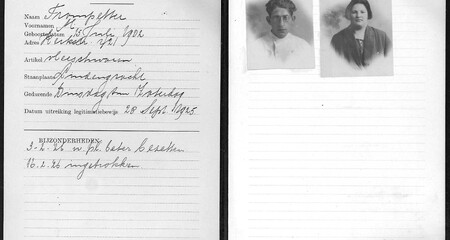 Naam Trompetter
Voornamen M.
Geboortedatum 5 Juli 1902
Adres Kerkstr
Artikel vleeschwaren
Staanplaats Lindengracht
Gedurende Dinsdag en Zaterdag
Datum uitreiking legitimatiebewijs 28 Sept. 1925
BIJZONDERHEDEN
3-2-26 w. pl. beter bezetten
16.2.26 ingetrokken